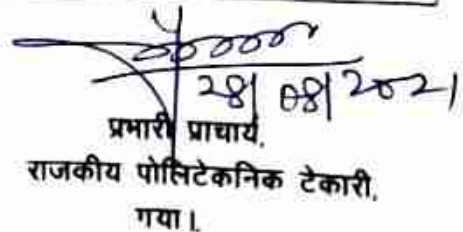 28/08/2021
प्रभारी प्राचार्य,
राजकीय पोलिटेकनिक टेकारी,
गया।